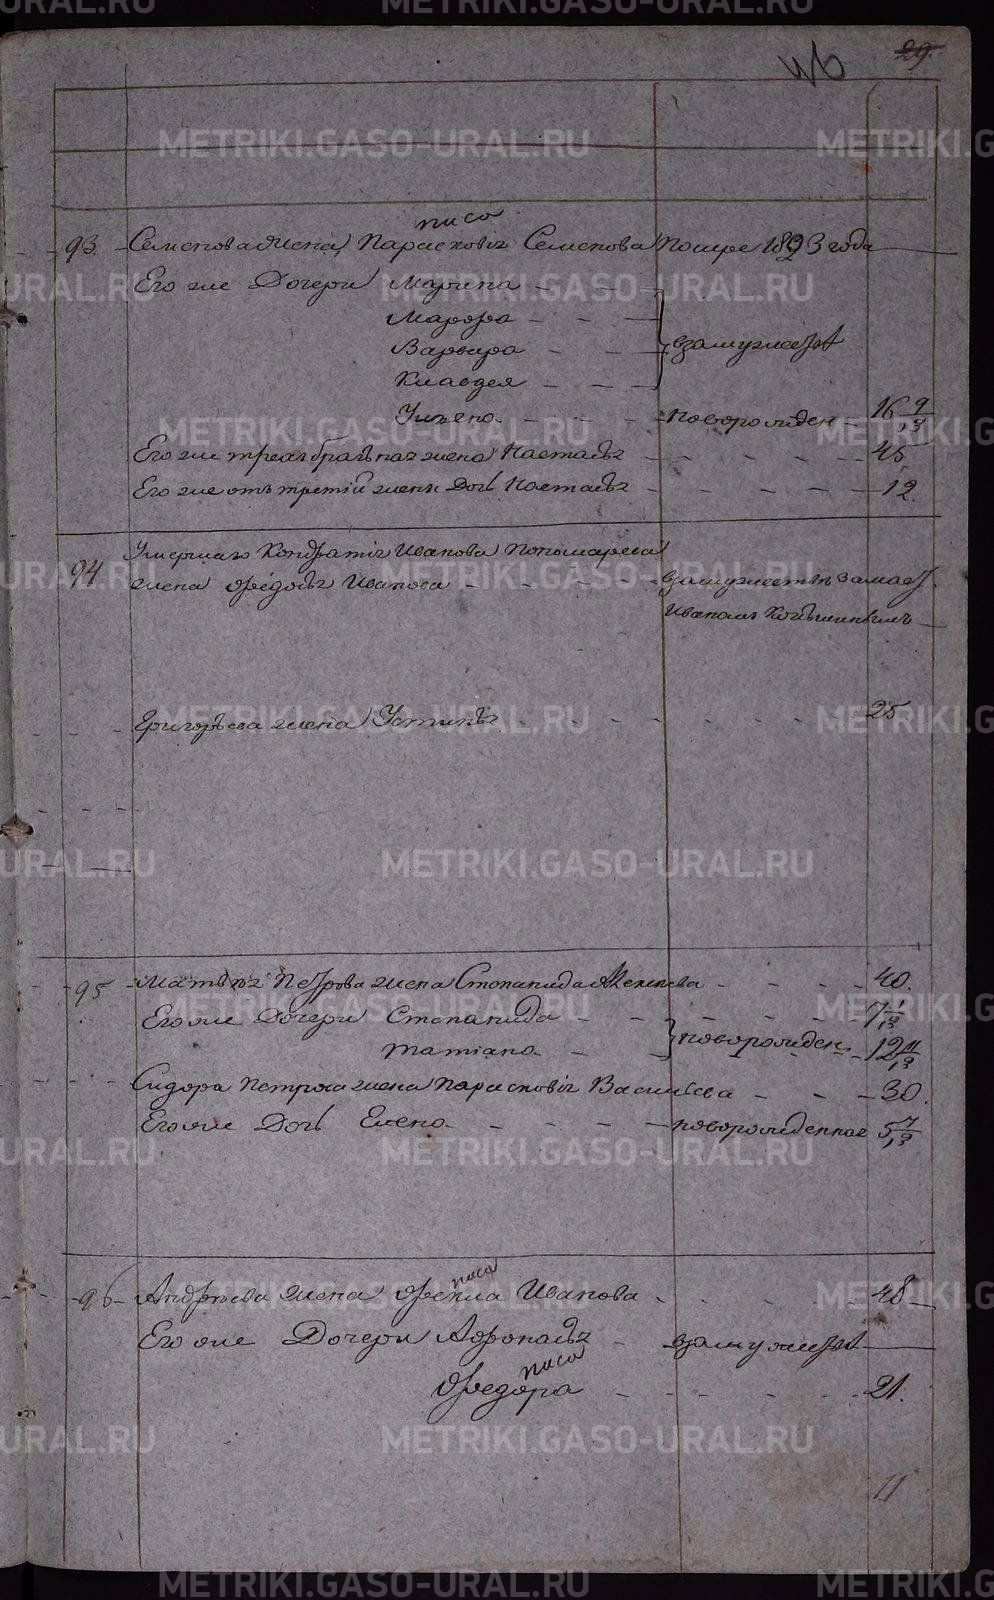 29.
93. Семенова жена Парасковiя Семенова Помре 1823 года
Его же Дочери Марина
Марфа
Варвара взамужестве
Клавдея
Ульена новорожден 16 9/13
Его же Настасья 45
Его же отъ третiй жены Дочь Настасья 12
94 Умершаго Кондратiя Иванова Пономарева
жена Федосья Иванова взамужестве
Иваномъ
Григорьева жена Устинья 25
95 Матвея Петрова жена Степанида 40.
Его же Дочери Степанида 7 1/13
Татiана новорожден. 12 11/13
Сидора Петрова жена Парасковiя Васильева 30.
Его же Дочь Елена новорожденная 5 7/13
96 Андреева жена Фекла Иванова 48
Его же Дочери Афонасья взамужестве
Федора 21.
11
METRIKI.GASO-URAL.RU